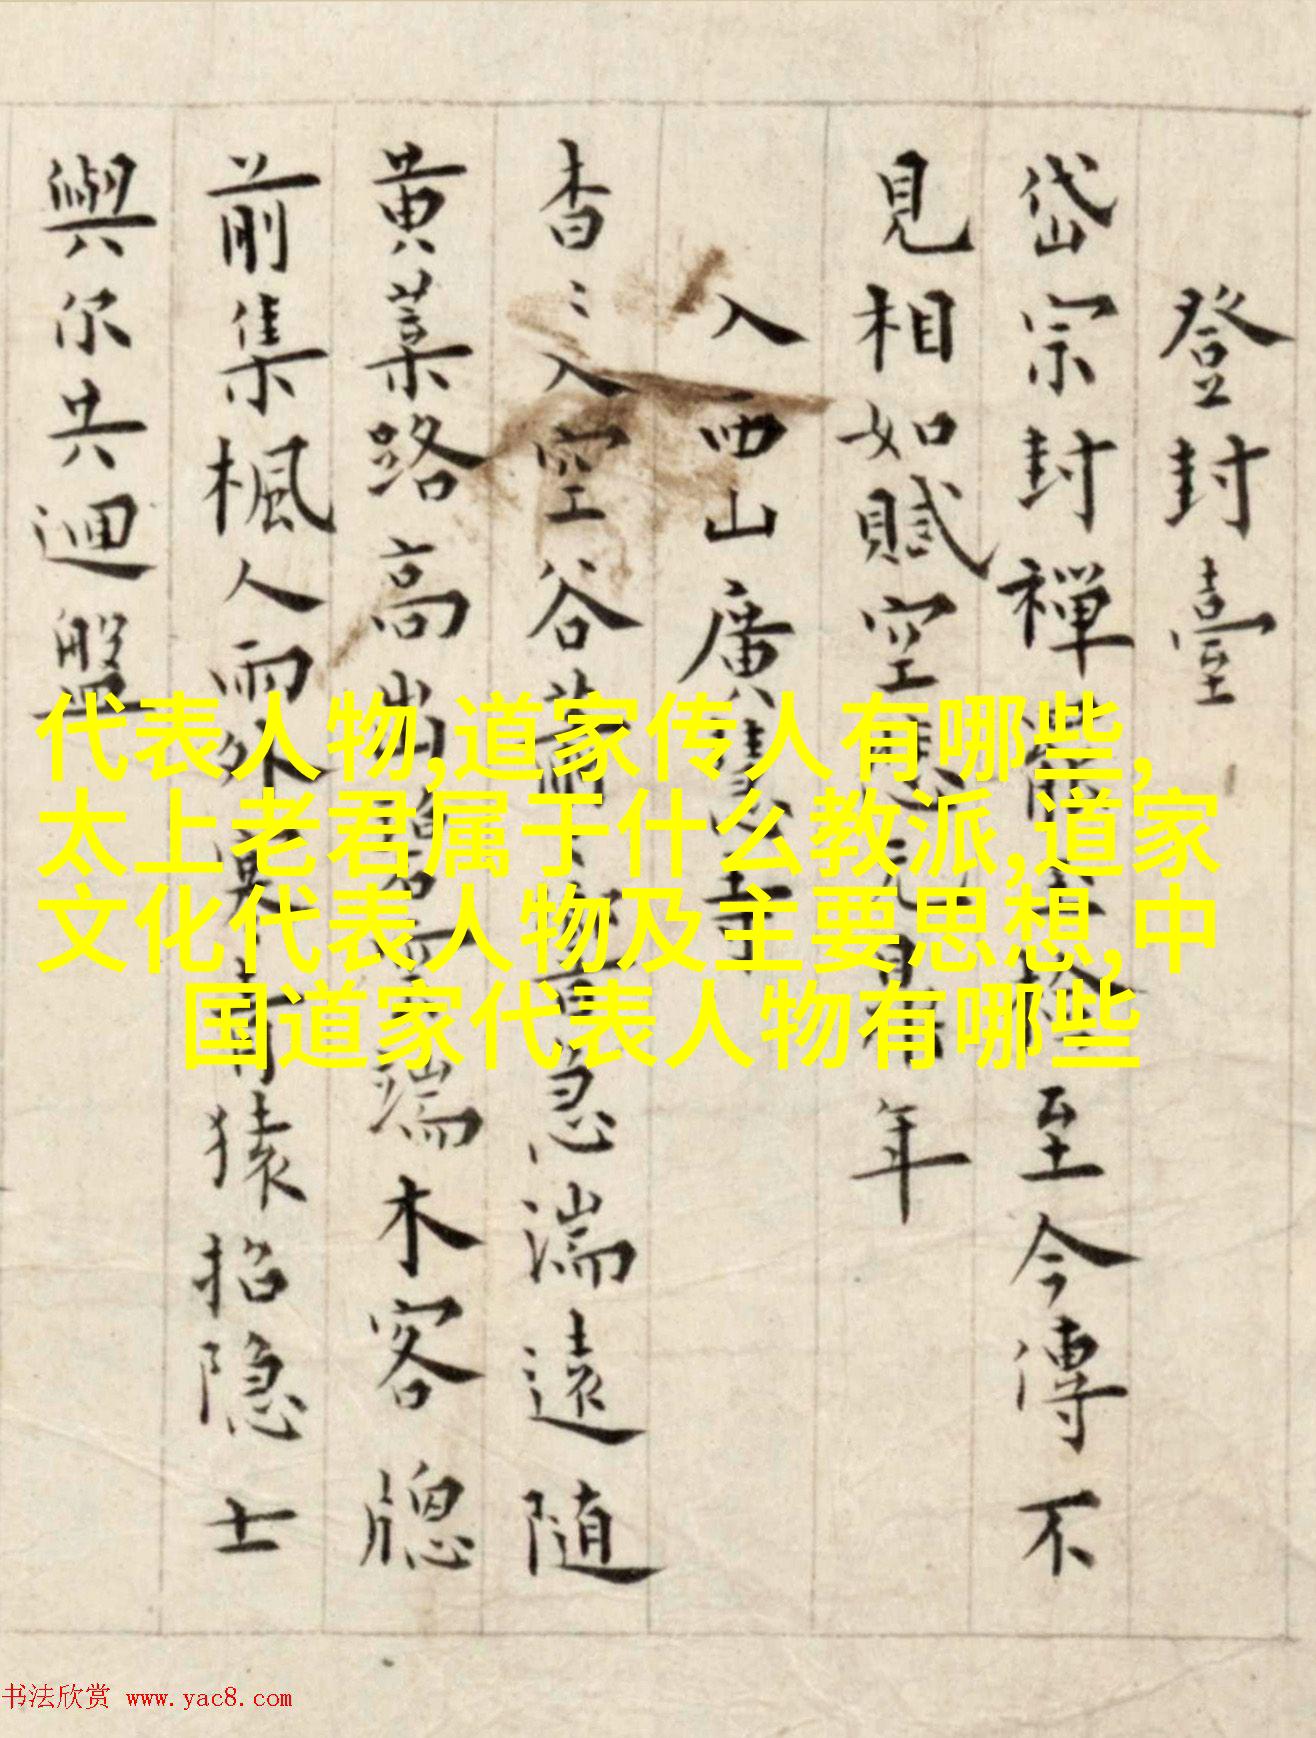 登封臺
岱宗封禪至今傳不
見相如賦空年
入西山廣
杳〻入空谷急湍遠隨
黃葉路高出端木客牕
前集楓人雨外青猿招隐士
與尔共迴盤
代表人物,道家传人有哪些,
太上老君属于什么教派,道家
文化代表人物及主要思想,中
国道家代表人物有哪些
书法欣赏 www.yac8.com